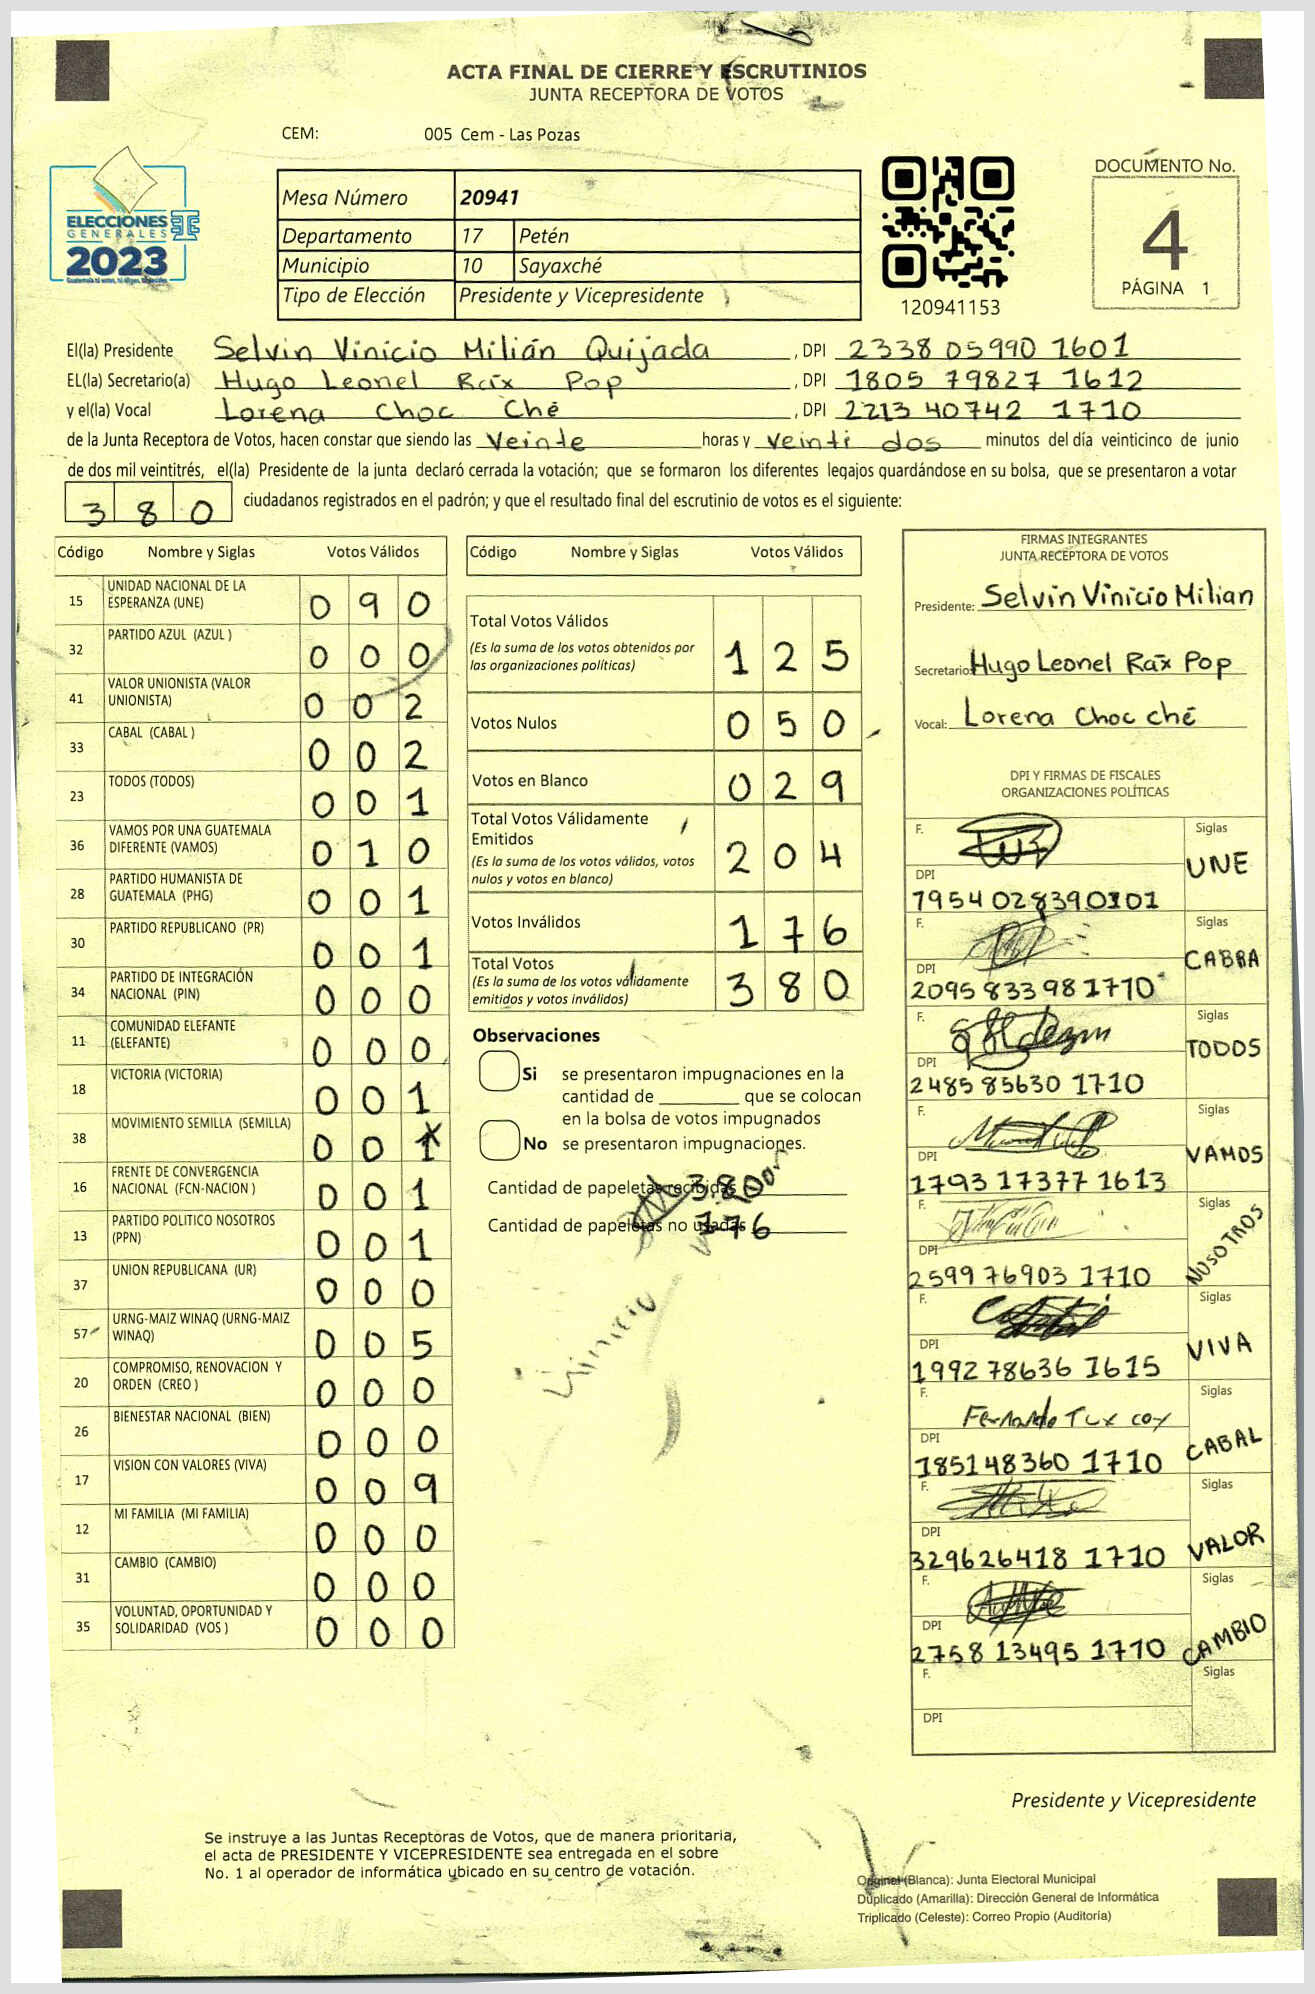 ACTA FINAL DE CIERRE Y ESCRUTINIOS
JUNTA RECEPTORA DE VOTOS
CEM: 005 Cem - Las Pozas
ELECCIONES
GENERALES
2023
Mesa Número 20941
Departamento 17 Petén
Municipio 10 Sayaxché
Tipo de Elección Presidente y Vicepresidente
120941153
DOCUMENTO No.
4
PÁGINA 1
El(la) Presidente Selvin Vinicio Milián Quijada , DPI 2338 05990 1601
EL(la) Secretario(a) Hugo Leonel Rax Pop , DPI 1805 79827 1612
y el(la) Vocal Lorena Choc Ché , DPI 2213 40742 1710
de la Junta Receptora de Votos, hacen constar que siendo las Veinte horas y veinti dos minutos del día veinticinco de junio
de dos mil veintitrés, el(la) Presidente de la junta declaró cerrada la votación; que se formaron los diferentes legajos quardándose en su bolsa, que se presentaron a votar
3 8 0 ciudadanos registrados en el padrón; y que el resultado final del escrutinio de votos es el siguiente:
Código Nombre y Siglas Votos Válidos
15 UNIDAD NACIONAL DE LA ESPERANZA (UNE) 0 9 0
32 PARTIDO AZUL (AZUL ) 0 0 0
41 VALOR UNIONISTA (VALOR UNIONISTA) 0 0 2
33 CABAL (CABAL ) 0 0 2
23 TODOS (TODOS) 0 0 1
36 VAMOS POR UNA GUATEMALA DIFERENTE (VAMOS) 0 1 0
28 PARTIDO HUMANISTA DE GUATEMALA (PHG) 0 0 1
30 PARTIDO REPUBLICANO (PR) 0 0 1
34 PARTIDO DE INTEGRACIÓN NACIONAL (PIN) 0 0 0
11 COMUNIDAD ELEFANTE (ELEFANTE) 0 0 0
18 VICTORIA (VICTORIA) 0 0 1
38 MOVIMIENTO SEMILLA (SEMILLA) 0 0 1
16 FRENTE DE CONVERGENCIA NACIONAL (FCN-NACION ) 0 0 1
13 PARTIDO POLITICO NOSOTROS (PPN) 0 0 1
37 UNION REPUBLICANA (UR) 0 0 0
57 URNG-MAIZ WINAQ (URNG-MAIZ WINAQ) 0 0 5
20 COMPROMISO, RENOVACION Y ORDEN (CREO ) 0 0 0
26 BIENESTAR NACIONAL (BIEN) 0 0 0
17 VISION CON VALORES (VIVA) 0 0 9
12 MI FAMILIA (MI FAMILIA) 0 0 0
31 CAMBIO (CAMBIO) 0 0 0
35 VOLUNTAD, OPORTUNIDAD Y SOLIDARIDAD (VOS ) 0 0 0
Código Nombre y Siglas Votos Válidos
Total Votos Válidos 1 2 5
(Es la suma de los votos obtenidos por
las organizaciones políticas)
Votos Nulos 0 5 0
Votos en Blanco 0 2 9
Total Votos Válidamente
Emitidos 2 0 4
(Es la suma de los votos válidos, votos
nulos y votos en blanco)
Votos Inválidos 1 7 6
Total Votos 3 8 0
(Es la suma de los votos válidamente
emitidos y votos inválidos)
Observaciones
Si se presentaron impugnaciones en la
cantidad de ________ que se colocan
en la bolsa de votos impugnados
No se presentaron impugnaciones.
Cantidad de papeletas recibidas 380
Cantidad de papeletas no usadas 176
Vinicio
FIRMAS INTEGRANTES
JUNTA RECEPTORA DE VOTOS
Presidente: Selvin Vinicio Milian
Secretario: Hugo Leonel Rax Pop
Vocal: Lorena Choc ché
DPI Y FIRMAS DE FISCALES
ORGANIZACIONES POLÍTICAS
F. Siglas UNE
DPI 7954 028390101
F. Siglas CABBA
DPI 2095 833 98 1710
F. Siglas TODOS
DPI 2485 85630 1710
F. Siglas VAMOS
DPI 1793 17377 1613
F. Siglas NOSOTROS
DPI 2599 76903 1710
F. Siglas VIVA
DPI 1992 78636 1615
F. Fernando Tux coy Siglas CABAL
DPI 1851 48360 1710
F. Siglas VALOR
DPI 329626418 1710
F. Siglas CAMBIO
DPI 2758 13495 1710
F. Siglas
DPI
Presidente y Vicepresidente
Se instruye a las Juntas Receptoras de Votos, que de manera prioritaria,
el acta de PRESIDENTE Y VICEPRESIDENTE sea entregada en el sobre
No. 1 al operador de informática ubicado en su centro de votación.
Original (Blanca): Junta Electoral Municipal
Duplicado (Amarilla): Dirección General de Informática
Triplicado (Celeste): Correo Propio (Auditoría)